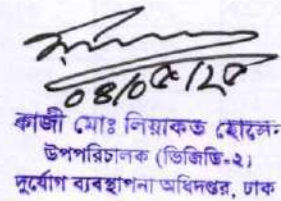 ০৪/০৫/২৫
কাজী মোঃ লিয়াকত হোসেন
উপপরিচালক (ভিজিডি-২)
দুর্যোগ ব্যবস্থাপনা অধিদপ্তর, ঢাকা